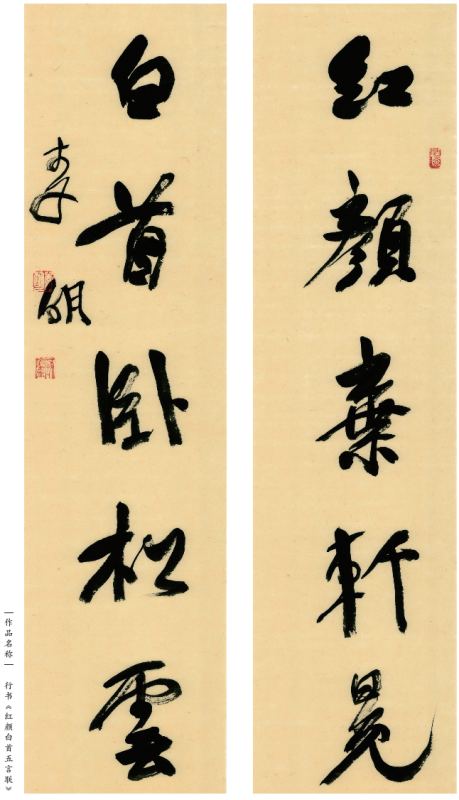 红顏棄軒冕
白首卧松雲
李
作品名称
行书《红颜白首五言联》